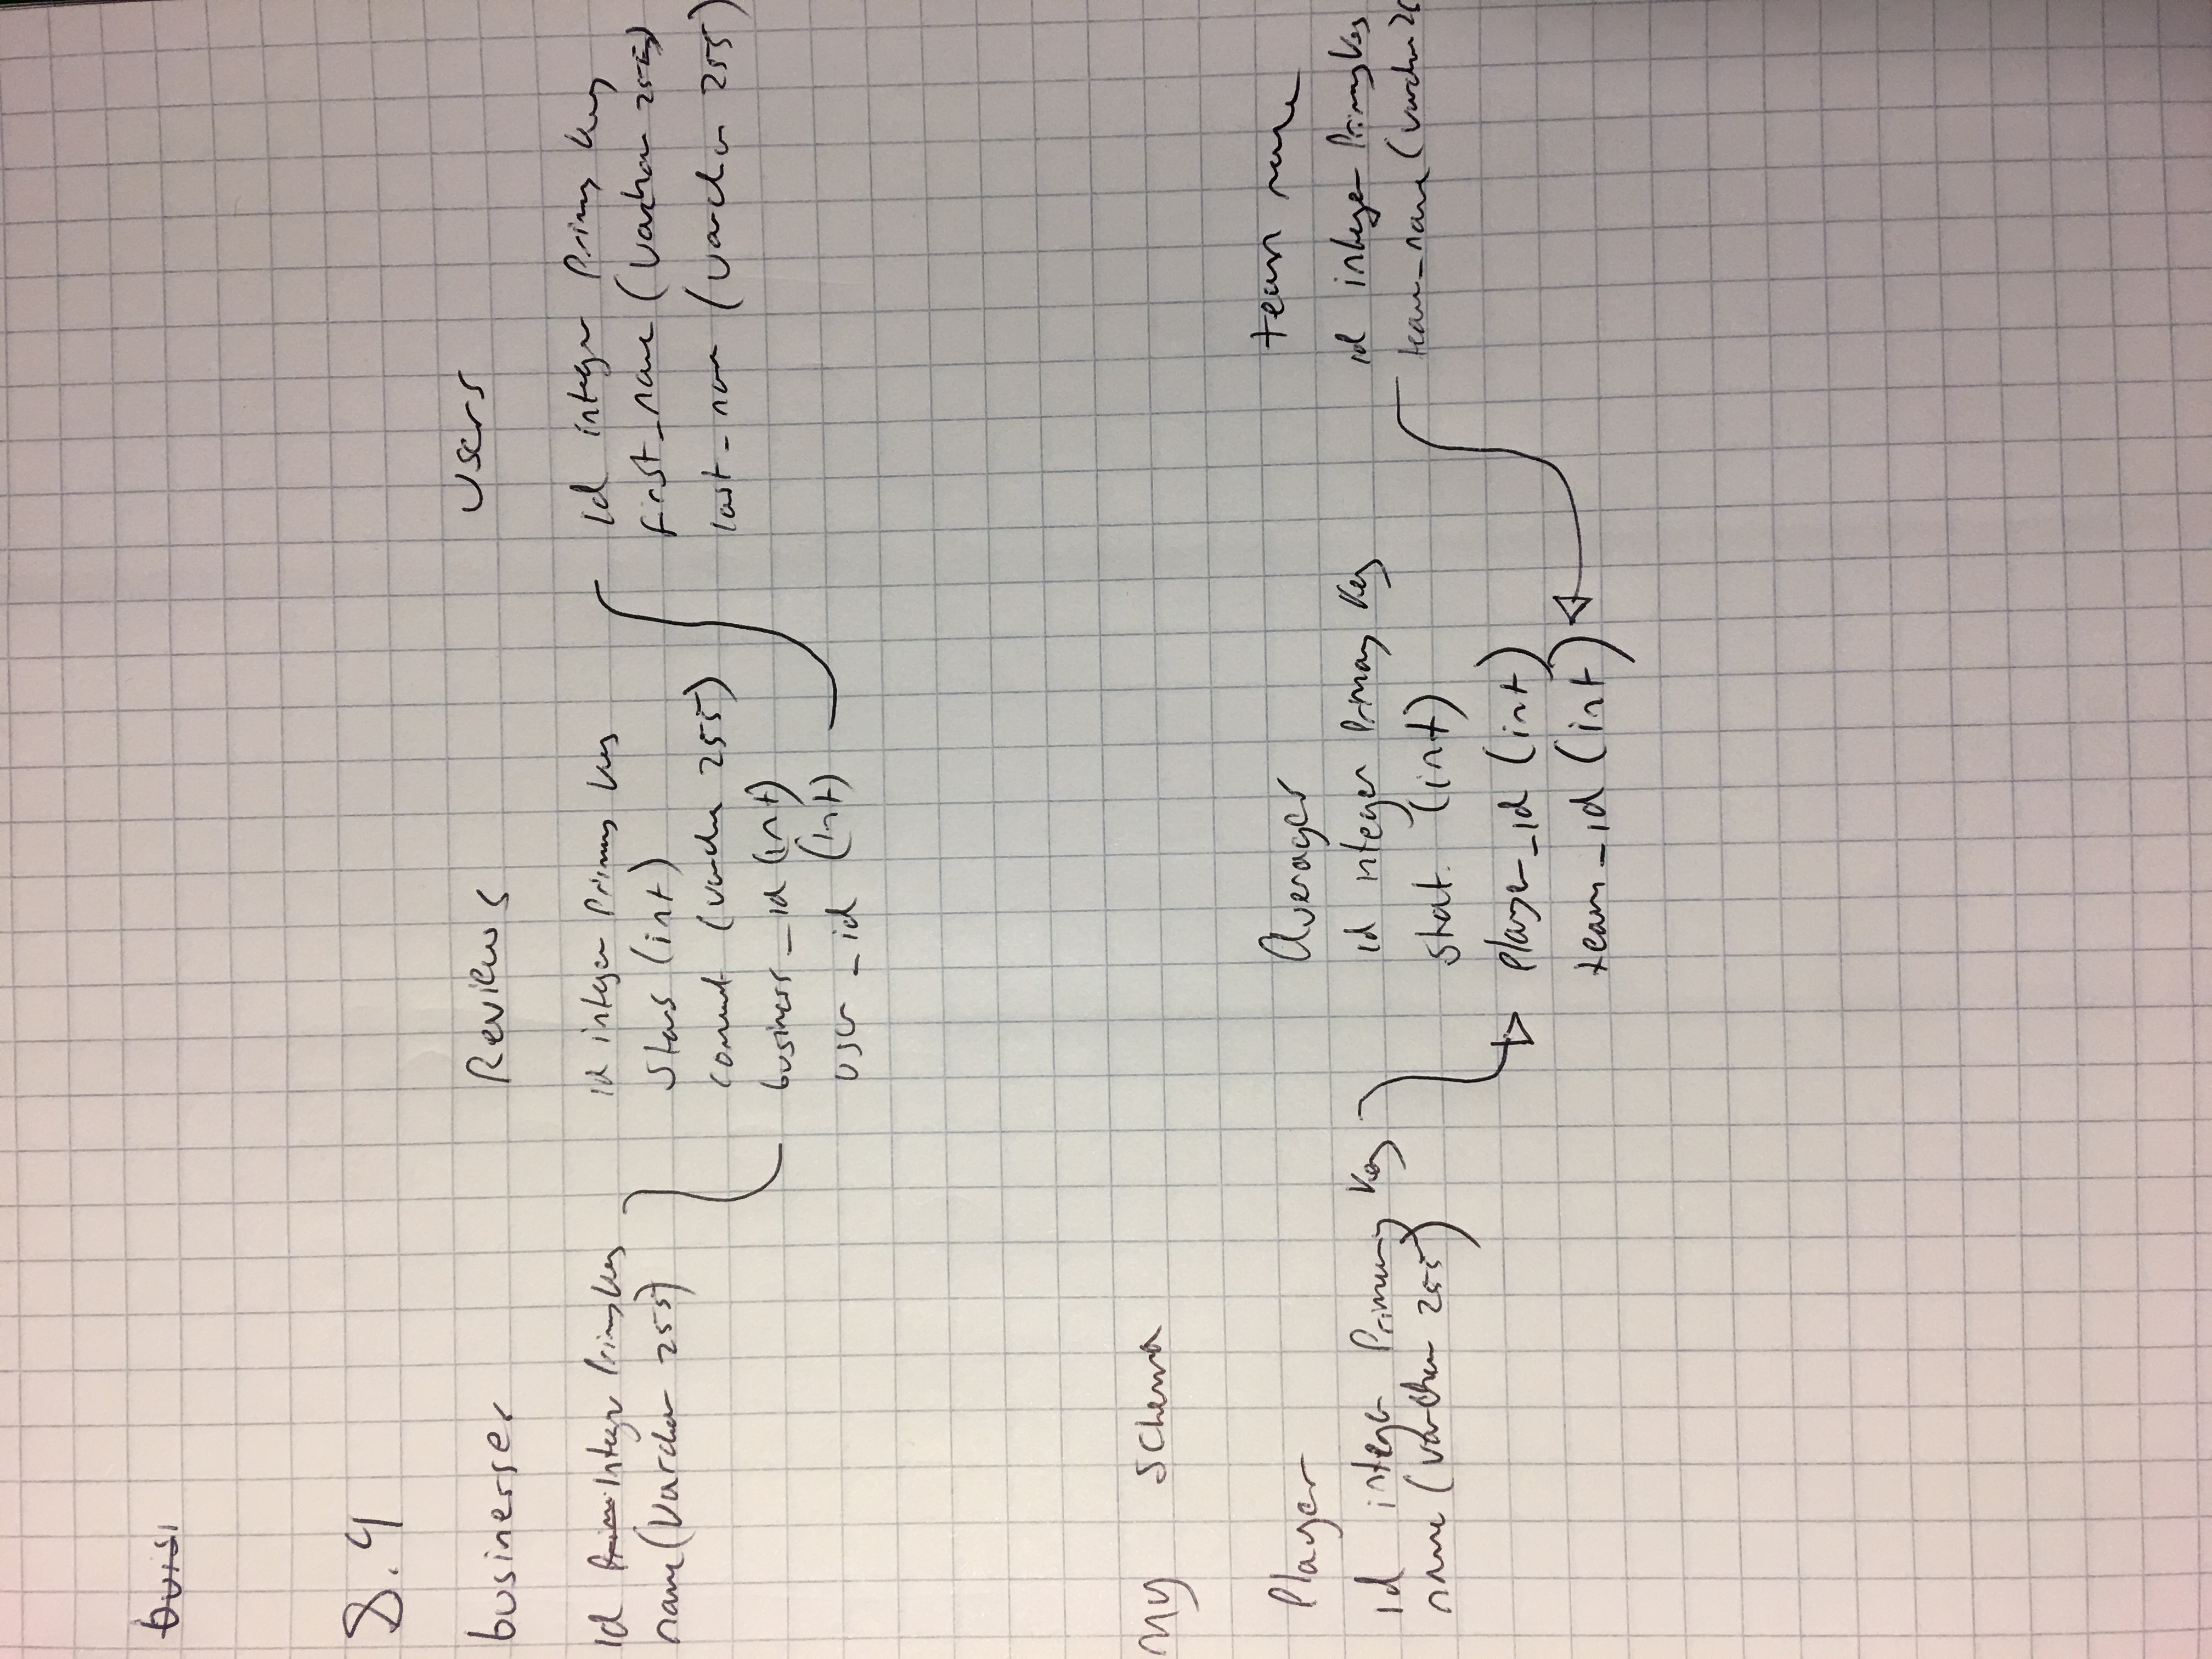 8.4
businesses
Id Integer Primary Key
name (Varchar 255)
Reviews
id integer Primary Key
Stars (int)
comment (varchar 255)
business_id (int)
user_id (int)
Users
Id integer Primary Key
first_name (Varchar 255)
last_name (varchar 255)
My Schema
Player
id integer Primary Key
name (varchar 255)
Averages
id integer Primary Key
stat (int)
player_id (int)
team_id (int)
team name
id integer Primary Key
team_name (varchar 25